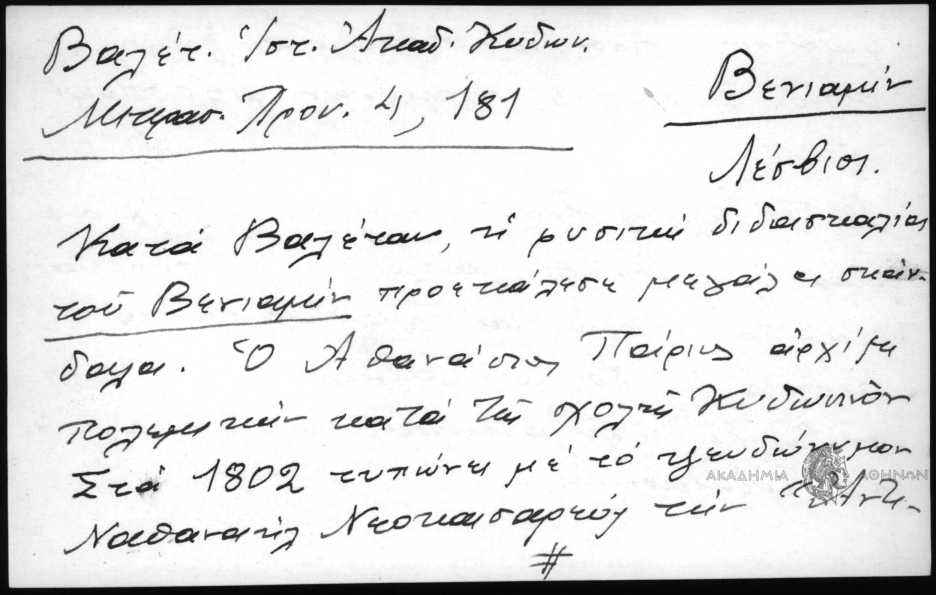 Βαλέτ. Ἱστ. Ἀκαδ. Κυδων.
Μικρασ. Χρον. 4, 181
Βενιαμίν
Λέσβιος.
Κατὰ Βαλέταν, ἡ φυσικὴ διδασκαλία
τοῦ Βενιαμίν προεκάλεσε μεγάλα σκάν-
δαλα. Ὁ Ἀθανάσιος Πάριος ἀρχίζει
πολεμικὴν κατὰ τῆς σχολῆς Κυδωνιῶν
Στὰ 1802 τυπώνει μὲ τὸ ψευδώνυμον
Ναθαναὴλ Νεοκαισαρεὺς τὴν "Ἀντι-
#
ΑΚΑΔΗΜΙΑ ΑΘΗΝΩΝ